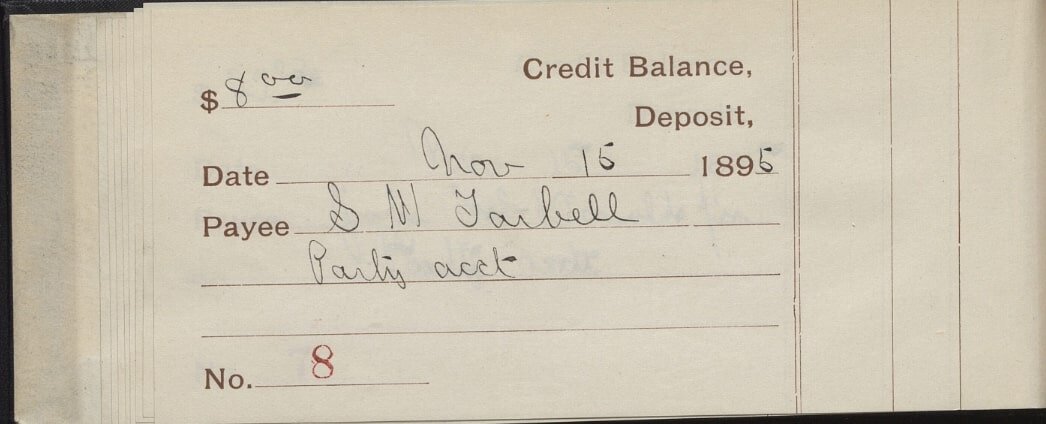 Credit Balance,
$ 8 00
Deposit,
Date Nov 15 1895
Payee S W Tarbell
Party acct
No. 8